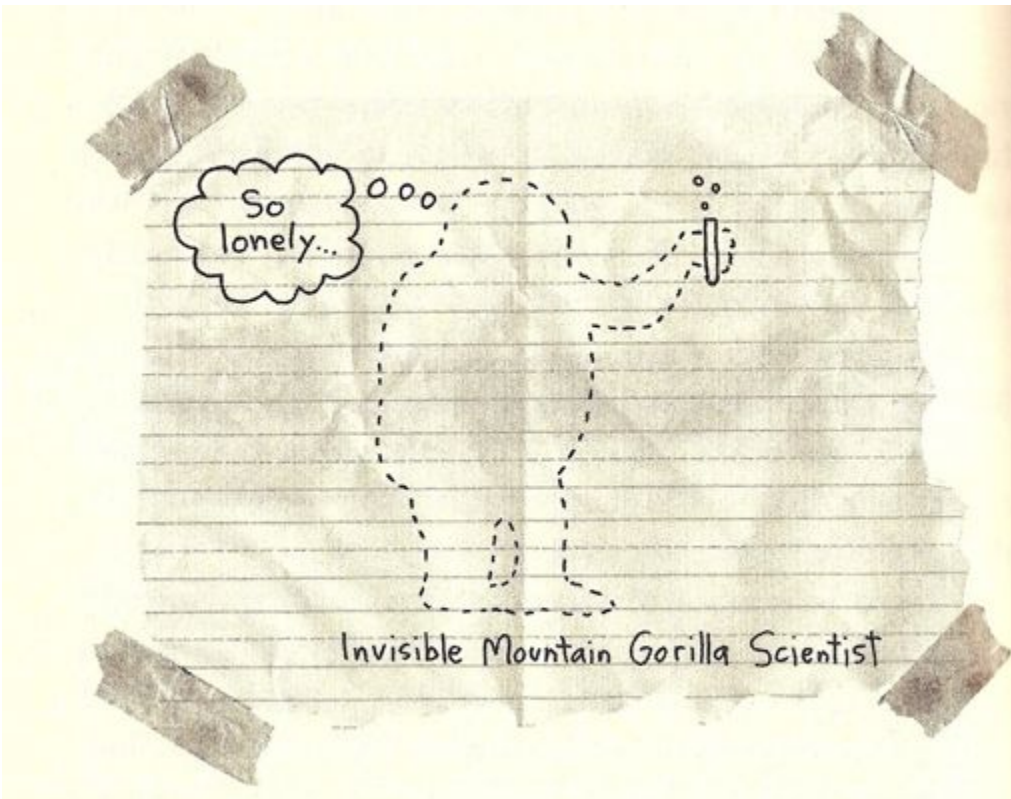 So
lonely...
Invisible Mountain Gorilla Scientist